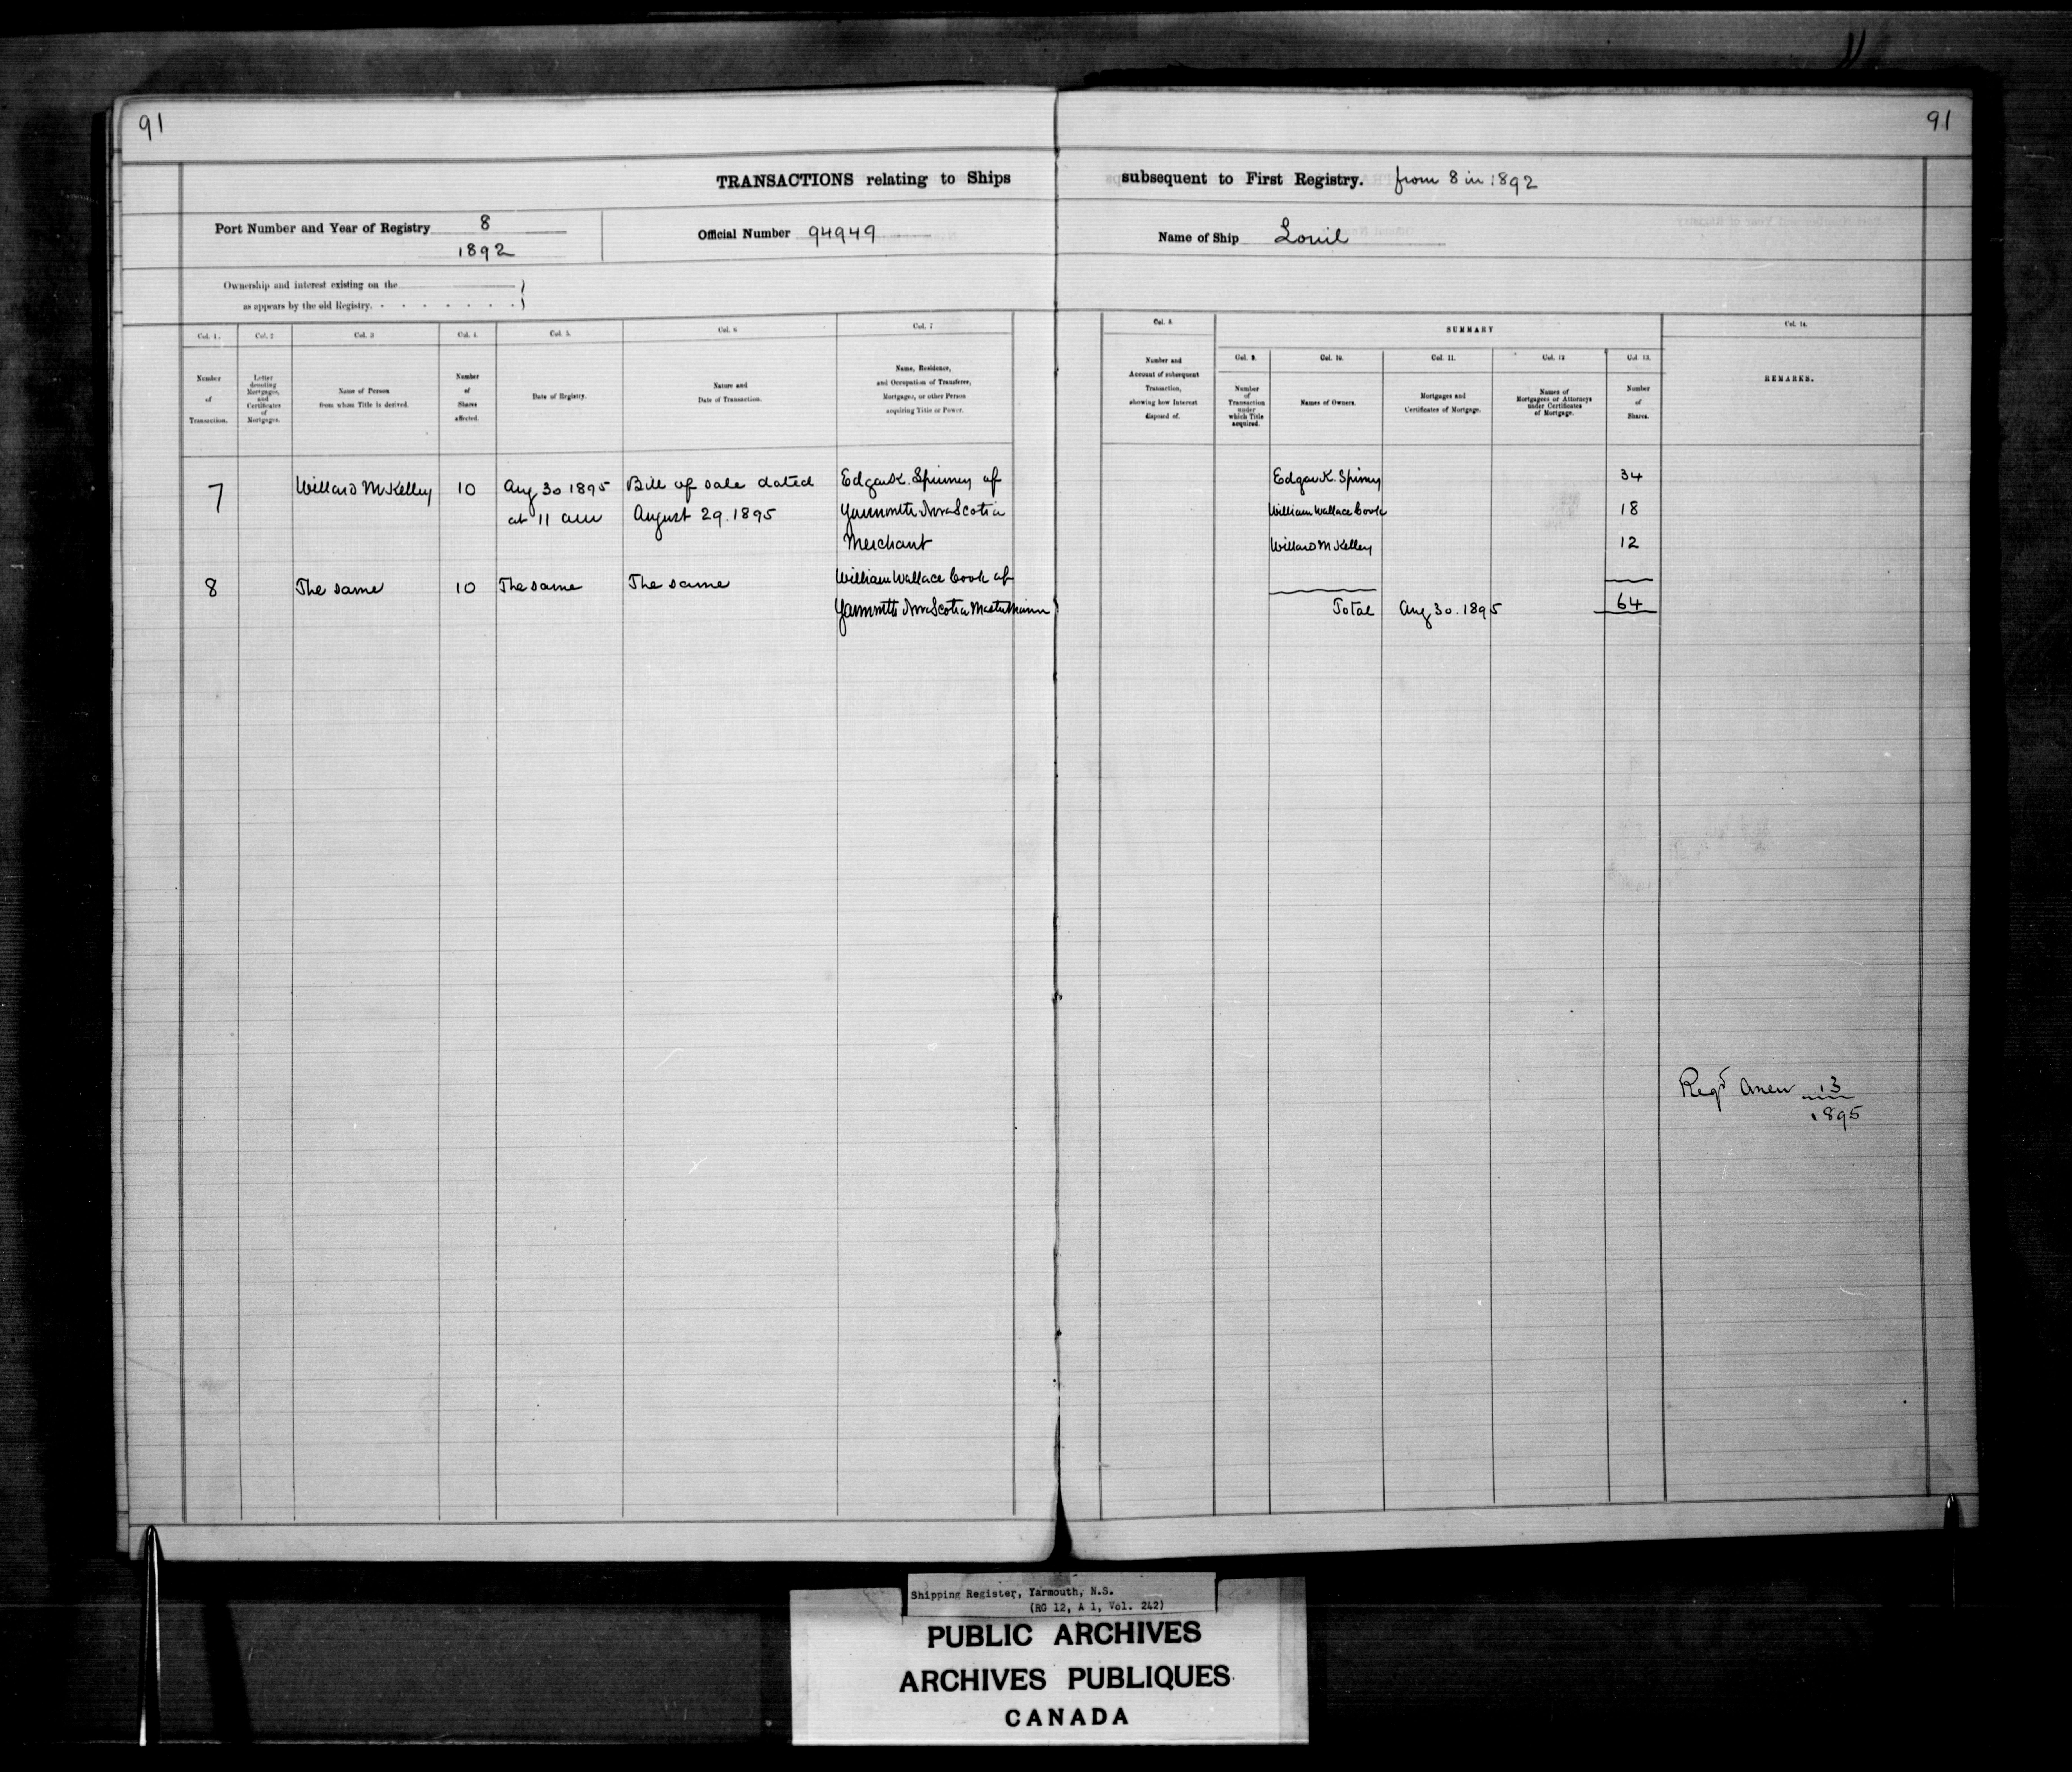 91
91
TRANSACTIONS relating to Ships subsequent to First Registry. from 8 in 1892
Port Number and Year of Registry 8
1892
Official Number 94949
Name of Ship Louil
Ownership and interest existing on the
as appears by the old Registry.
Col. 1.
Number
of
Transaction.
Col. 2
Letter
denoting
Mortgages,
and
Certificates
of
Mortgages.
Col. 3
Name of Person
from whom Title is derived.
Col. 4
Number
of
Shares
affected.
Col. 5.
Date of Registry.
Col. 6
Nature and
Date of Transaction.
Col. 7
Name, Residence,
and Occupation of Transferee,
Mortgagee, or other Person
acquiring Title or Power.
Col. 8.
Number and
Account of subsequent
Transaction,
showing how Interest
disposed of.
SUMMARY
Col. 9.
Number
of
Transaction
under
which Title
acquired.
Col. 10.
Names of Owners.
Col. 11.
Mortgages and
Certificates of Mortgage.
Col. 12
Names of
Mortgagees or Attorneys
under Certificates
of Mortgage.
Col. 13.
Number
of
Shares.
Col. 14.
REMARKS.
7
Willard M Kelley
10
Aug 30 1895
at 11 am
Bill of sale dated
August 29. 1895
Edgar K. Spinney of
Yarmouth Nova Scotia
Merchant
8
The same
10
The same
The same
William Wallace Cook of
Yarmouth Nova Scotia Master Mariner
Edgar K. Spinney
34
William Wallace Cook
18
Willard M Kelley
12
Total Aug 30. 1895 64
Regd Anew 13
1895
Shipping Register, Yarmouth, N.S.
(RG 12, A 1, Vol. 242)
PUBLIC ARCHIVES
ARCHIVES PUBLIQUES
CANADA